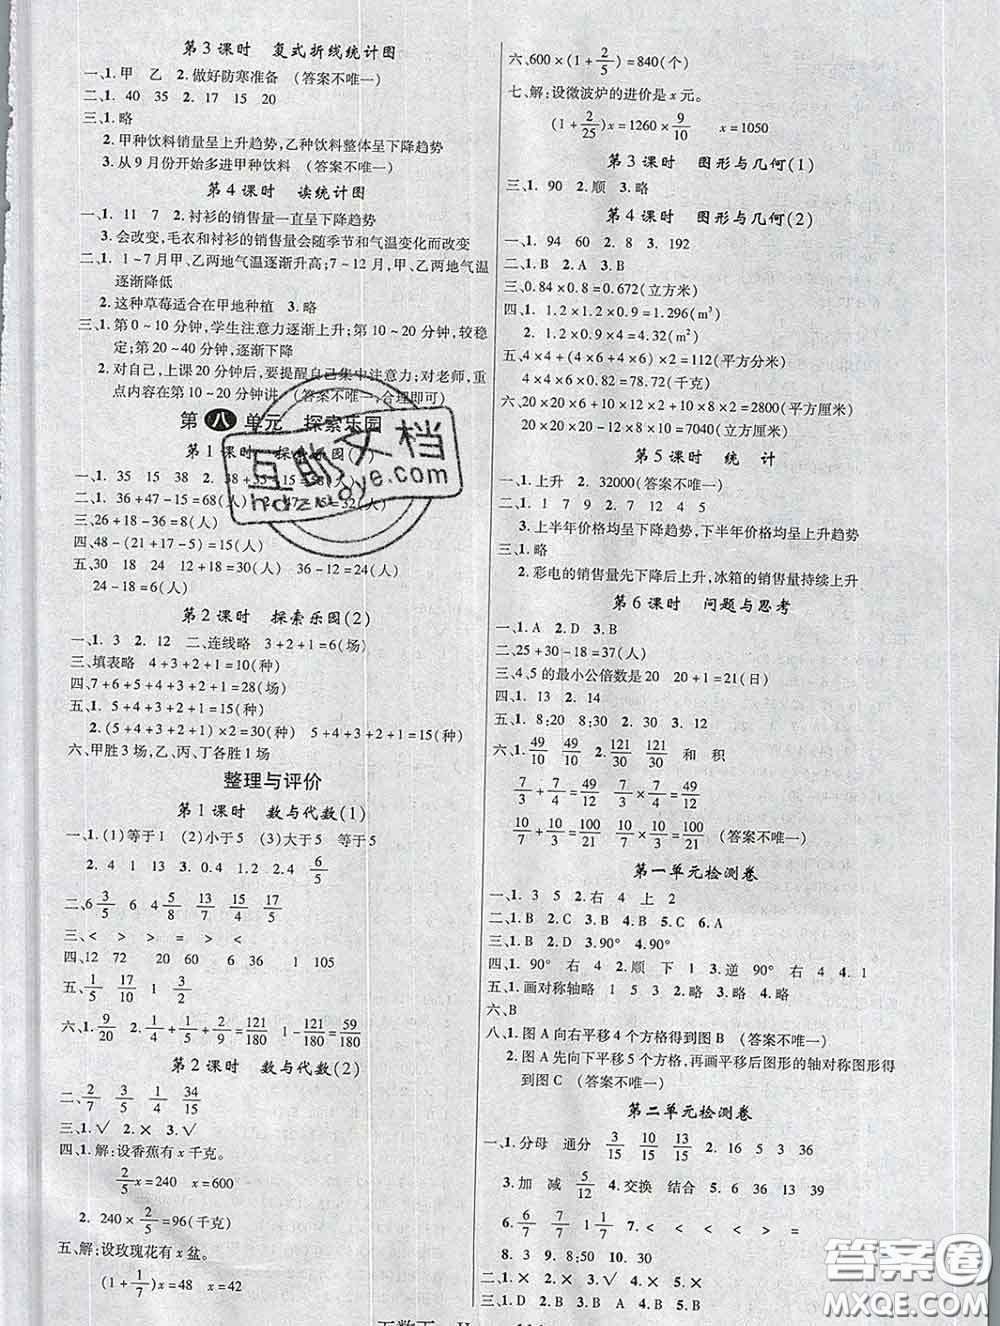 第3课时 复式折线统计图
一、1.甲 乙 2.做好防寒准备 (答案不唯一)
二、1. 40 35 2. 17 15 20
三、1.略
2.甲种饮料销售量呈上升趋势,乙种饮料整体呈下降趋势
3.从9月份开始多进甲种饮料 (答案不唯一)
第4课时 读统计图
一、1. 11 7 2.衬衫的销售量一直呈下降趋势
3.会改变,毛衣和衬衫的销售量会随季节和气温变化而改变
二、1. 1~7月甲、乙两地气温逐渐升高;7~12月,甲、乙两地气温逐渐降低
2.这种草莓适合在甲地种植 3.略
三、1.第0~10分钟,学生注意力逐渐上升;第10~20分钟,较稳定;第20~40分钟,逐渐下降
2.对自己,上课20分钟后,要提醒自己集中注意力;对老师,重点内容在第10~20分钟讲 (答案不唯一,合理即可)
第八单元 探索乐园
第1课时 探索乐园(1)
一、1. 35 15 38
二、1. 36+47-15=68(人)
三、26+18-36=8(人)
四、48-(21+15-3)=15(人)
五、30 18 24 12+30=42(人) 36-12=24(人)
24-18=6(人)
第2课时 探索乐园(2)
一、1. 3 2. 12 二、连线略 3+2+1=6(场)
三、填表略 4+3+2+1=10(种)
四、7+6+5+4+3+2+1=28(场)
五、1. 5+4+3+2+1=15(种)
2.(5+4+3+2+1)×2=30(种) 5+4+3+2+1=15(种)
六、甲胜3场,乙、丙、丁各胜1场
整理与评价
第1课时 数与代数(1)
一、1.(1)等于1 (2)小于5 (3)大于5 等于5
2. 4 1 13 3. 0.4 1.2 4. 6/5
二、6 3/5 6 4 5/8 13/7 15/4 17/5
三、< > > = > <
四、12 72 20 60 6 36 1 105
五、1/5 17/10 1 3/2
六、1. 9/20 2. 1/4+1/5+2/9=121/180 1-121/180=59/180
第2课时 数与代数(2)
二、2/7 3/5 1/4 34/15
三、1.√ 2.× 3.√
四、1.解:设香蕉有x千克。
2/5x=240 x=600
2. 240×2/5=96(千克)
五、解:设玫瑰花有x盆。
(1+1/7)x=48 x=42
六、600×(1+2/5)=840(个)
七、解:设微波炉的进价是x元。
(1+2/25)x=1260×9/10 x=1050
第3课时 图形与几何(1)
三、1. 90 2.顺 3.略
第4课时 图形与几何(2)
一、1. 94 60 2. 8 3. 192
二、1. B 2. A 3. B
三、0.84×0.8=0.672(立方米)
四、1. 1.2×1.2×0.9=1.296(m³)
2. 1.2×0.9×4=4.32(m²)
五、4×4+(4×6+4×6)×2=112(平方分米)
4×4×6×0.82=78.72(千克)
六、20×20×6+10×10×2+10×2×10=2800(平方厘米)
20×20×20-8×15×8=7040(立方厘米)
第5课时 统 计
一、1.上升 2. 32000(答案不唯一)
二、1. 1 7 9 2. 7 12 4 5
3.上半年价格均呈下降趋势,下半年价格均呈上升趋势
三、1.略
2.彩电的销售量先下降后上升,冰箱的销售量持续上升
第6课时 问题与思考
一、1. A 2. D 3. B
二、25+30-18=37(人)
三、4、5的最小公倍数是20 20+1=21(日)
四、1. 13 2. 14
五、1. 8:20 8:30 2. 30 3. 12
六、1. 49/10 49/10 2. 121/30 121/30 和 积
7/3+7/4=49/12 7/3×7/4=49/12
10/7+10/3=100/21 10/7×10/3=100/21 (答案不唯一)
第一单元检测卷
一、1. 3 5 2.右 4 上 2
二、1. B 2. C 3. B 4. B 5. C 6. A
三、1. B 2. D 3. 90° 4. 90°
四、1. 90° 右 4 2.顺 下 1 3.逆 90° 右 4 4. 1
五、1.画对称轴略 1 5 3 2.略 3.略
六、B
八、1.图A向右平移4个方格得到图B (答案不唯一)
2.图A先向下平移5个方格,再画平移后图形的轴对称图形得到图C (答案不唯一)
第二单元检测卷
一、1.分母 通分 3/15 10/15 13/15 2. 16 5 3 36
3.加 减 5/12 4.交换 结合 5. > < > =
6. 6/7 7/7 1 1/7 7. < < < < >
8. 3 9. 8:50 10. 30
二、1.× 2.× 3.√ 4.× 5.×
三、1. D
互助文档
hdzxxoye.com
答案圈
MXQE.COM